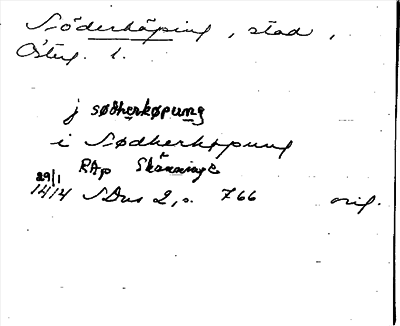 Söderköping, stad,
Östg. l.
j sødherkøpung
i Sødherkøpung
RAp Skänninge
29/1
1414 SDns 2, s. 766 orig.